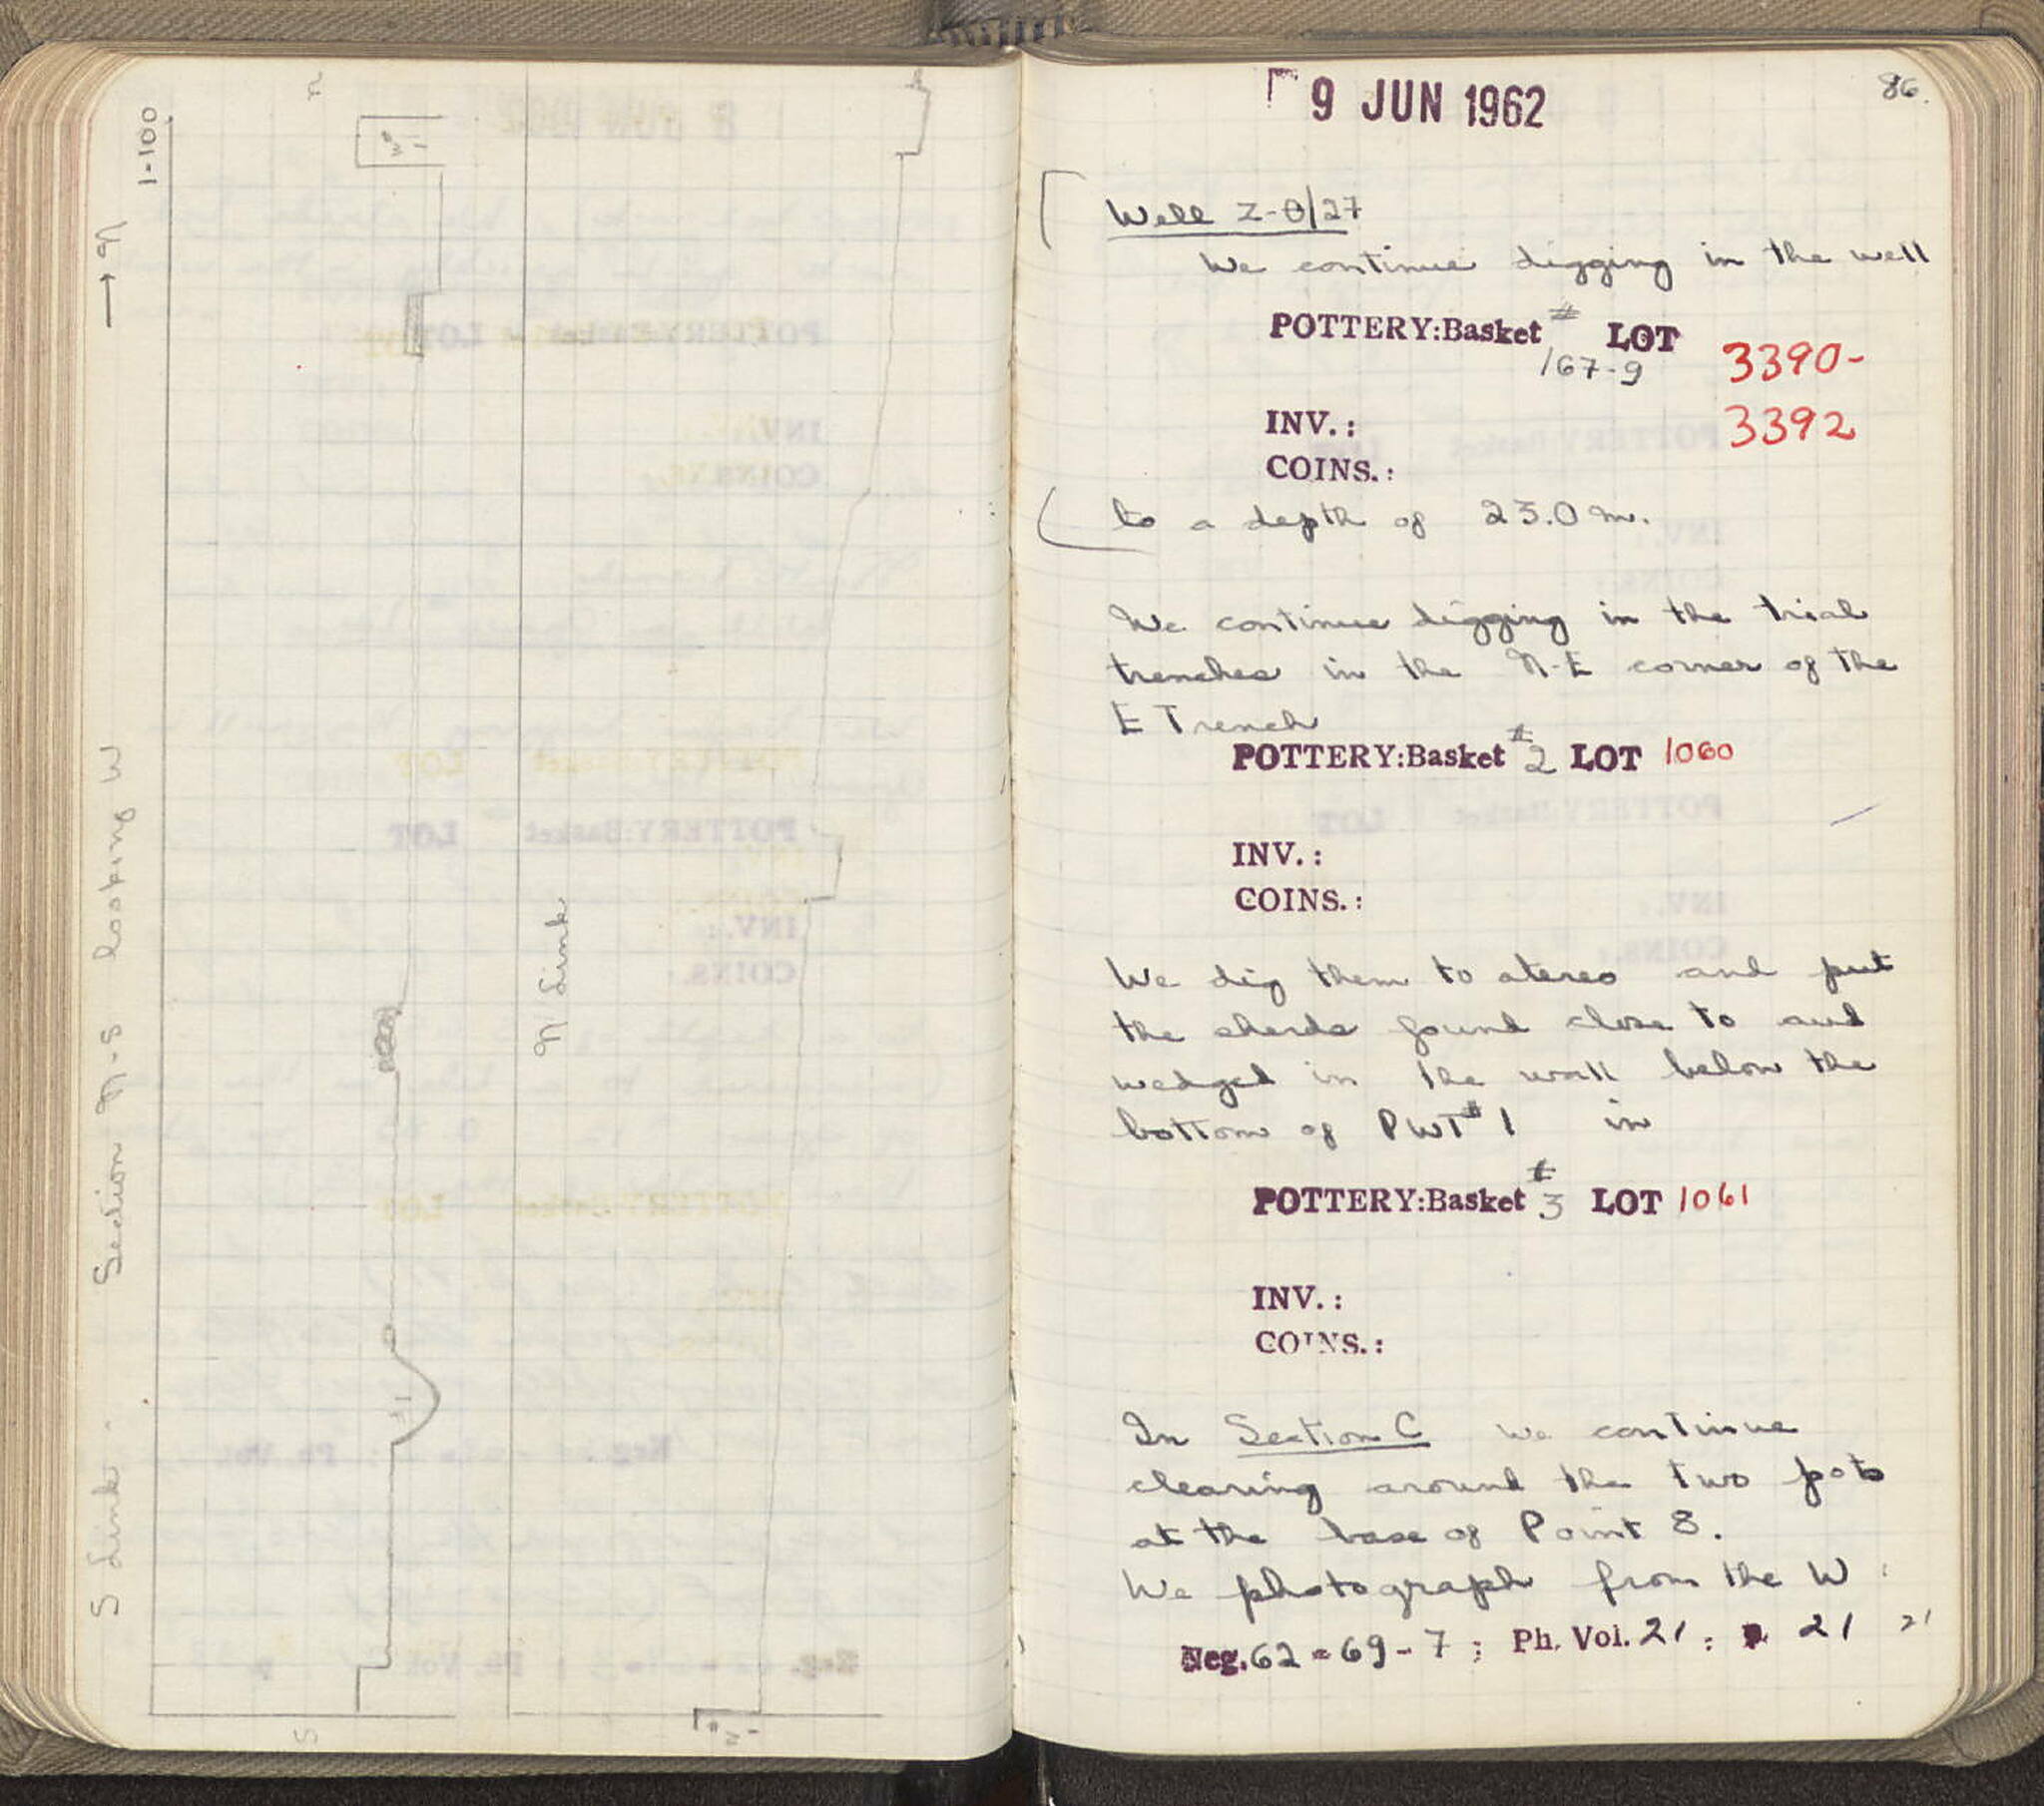 1-100
→ N
S Link. Section N-S looking W
N
W#1
S
N Link
9 JUN 1962
86.
Well Z-Θ/27
We continue digging in the well
POTTERY:Basket # LOT
167-9 3390-
INV.: 3392
COINS.:
to a depth of 23.0 m.
We continue digging in the trial
trenches in the N-E corner of the
E Trench
POTTERY:Basket #2 LOT 1060
INV.:
COINS.:
We dig them to stereo and put
the sherds found close to and
wedged in the wall below the
bottom of PWT #1 in
POTTERY:Basket #3 LOT 1061
INV.:
COINS.:
In Section C we continue
cleaning around the two pots
at the base of Point 8.
We photograph from the W:
Neg.62-69-7; Ph. Vol. 21: p. 21 21